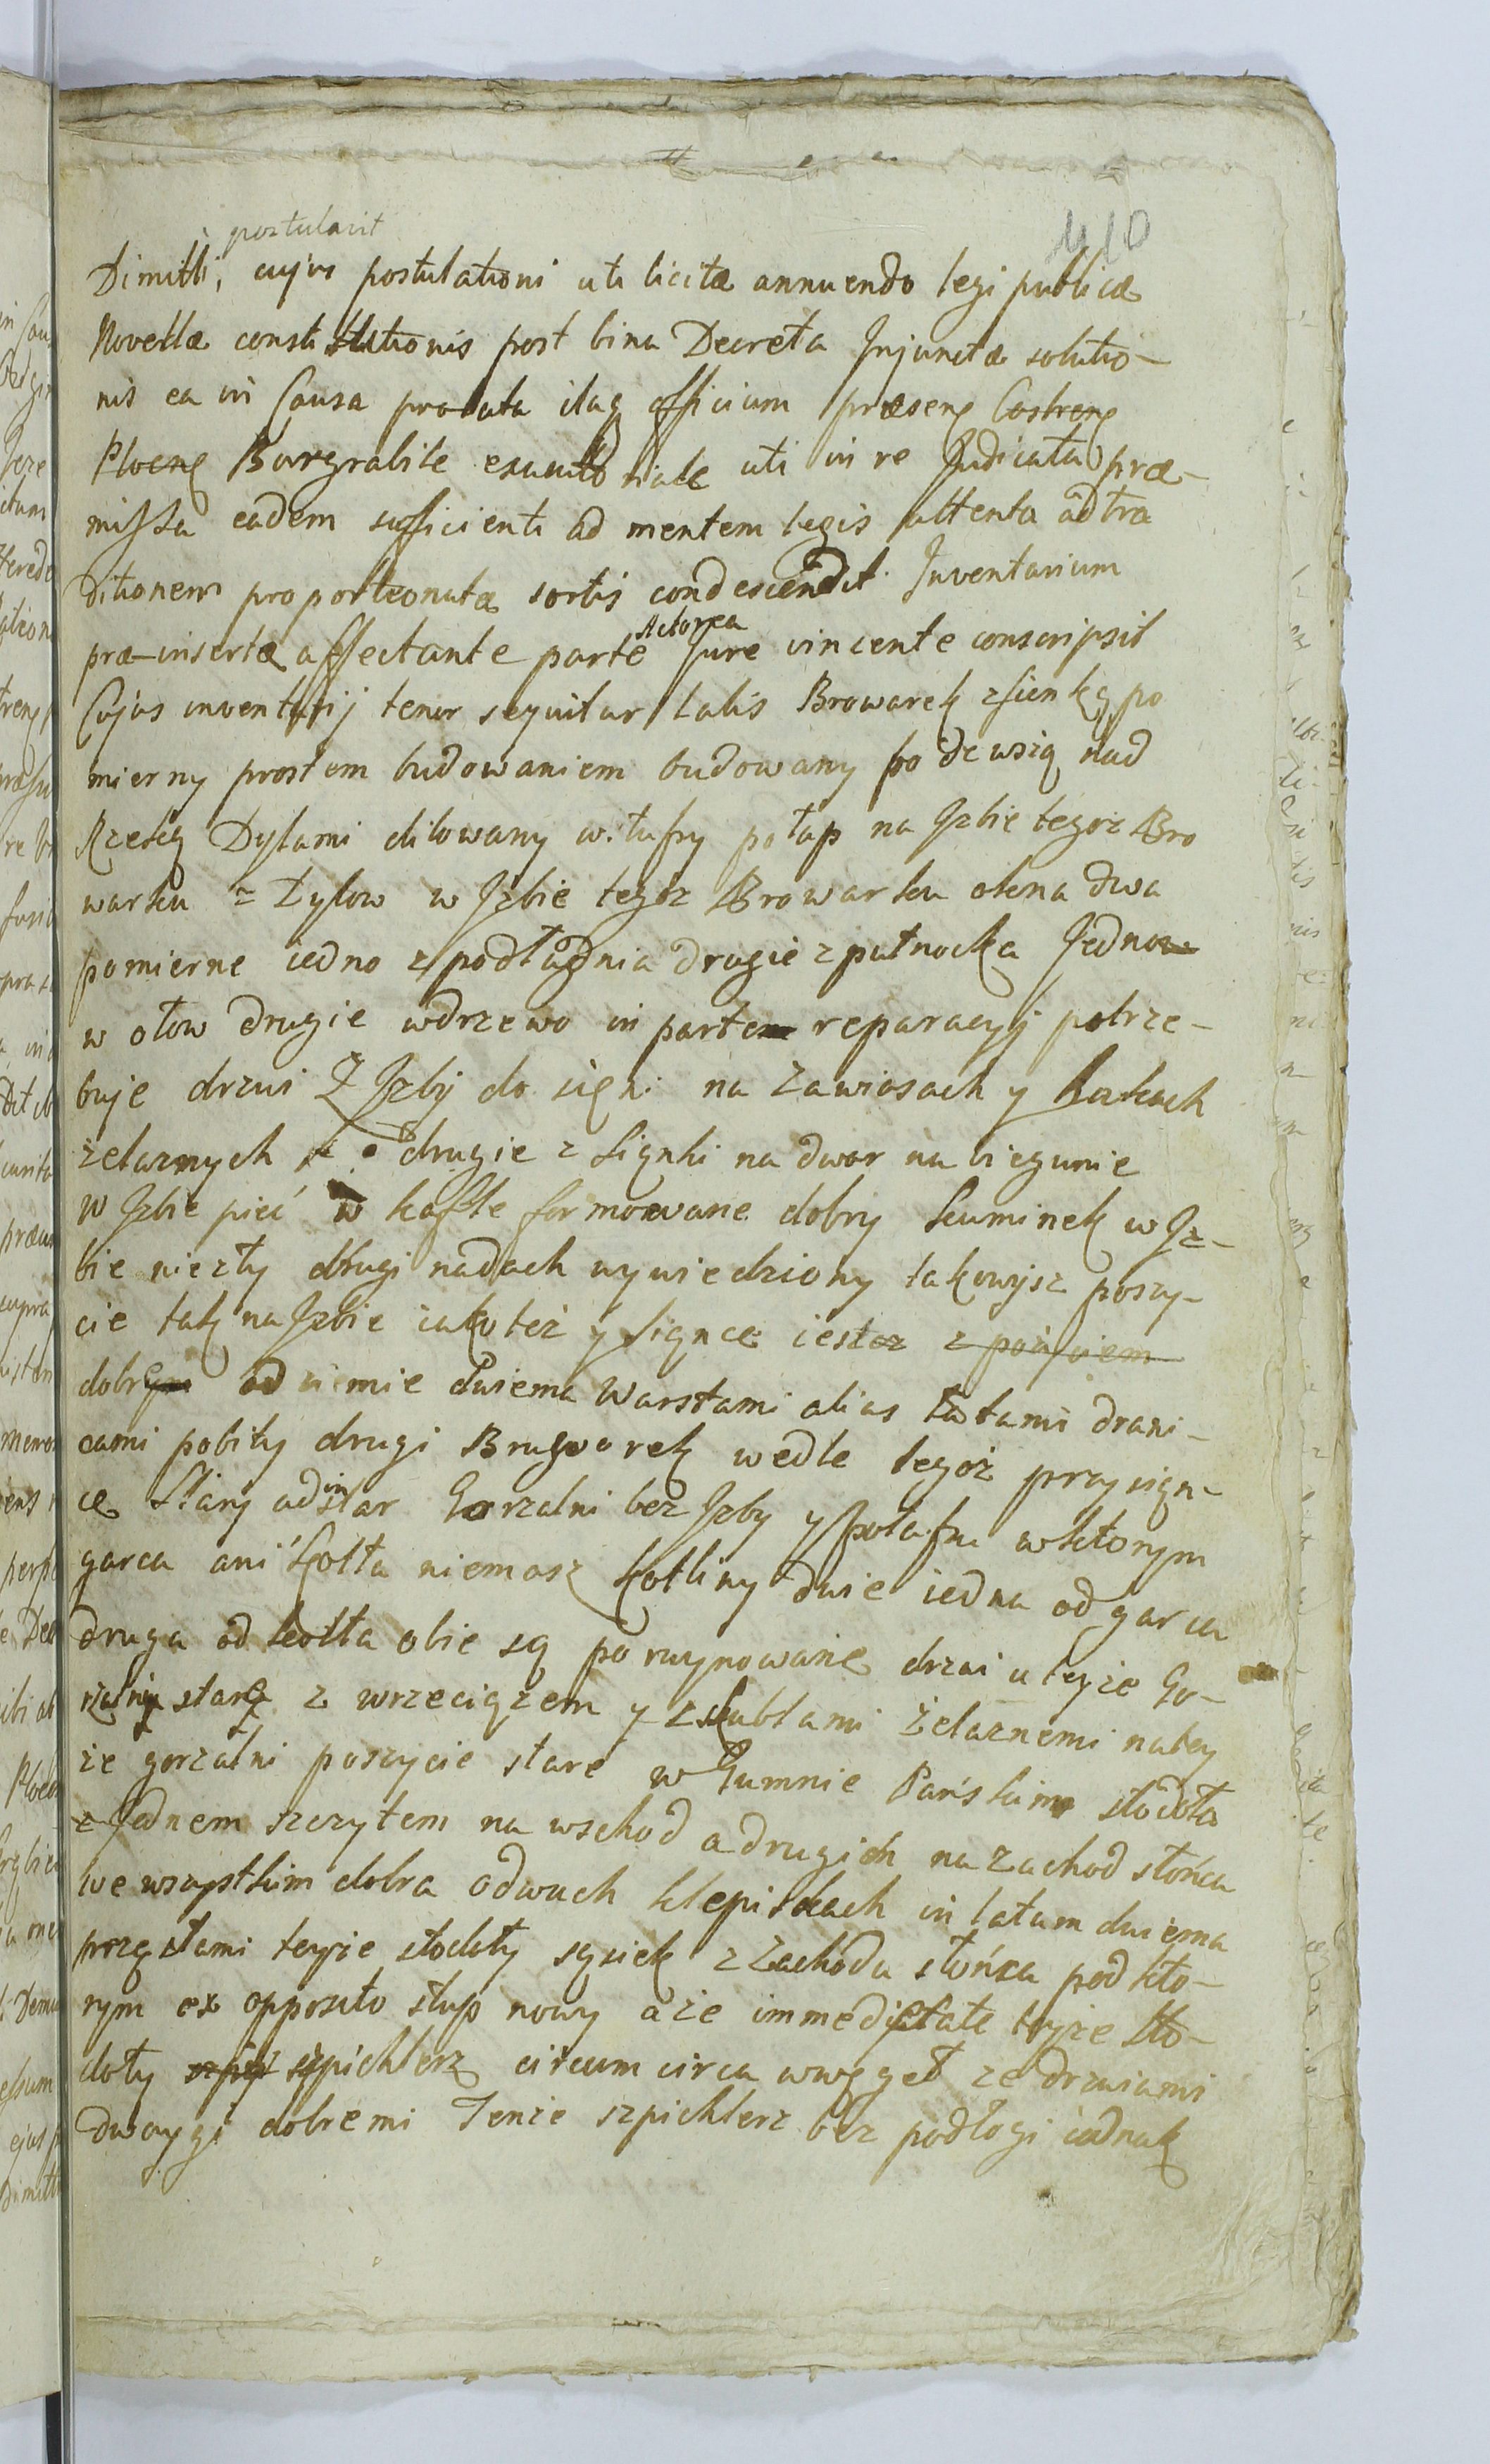 410
postulavit
Dimitti, cujus postulationi uti licitæ annuendo legi publicæ
Novellæ constitutionis post bina Decreta Injunctæ solutio-
nis ea in Causa prolata itaq officium præsens Castrens
Plocens Burgrabile exunto uti in re Judicata præ-
missa eadem sufficienti ad mentem legis attenta ad tra
ditionem proportionatæ sortis condescendit Inventarium
præ-insertæ affectante parte Actorea Jure vincente conscripsit
Cujus inventarij tenor sequitur talis Browarek z sienką po
mierny prostem budowaniem budowany podewsią nad
Rzeką Dylami dilowany w. słupy połap na Izbie tegoż Bro
warku z Dylow w Izbie tegoż Browarku okna dwa
pomierne iedno z południa drugie z pułnocka Jedno
w ołow drugie w drzewo in parte reparacyj potrze-
buje drzwi z Izby do sięni na zawiosach y hakach
żelaznych drugie z Siąnki na dwor na biegunie
w Izbie pieć w kafle formowane dobry kuminek w Iz-
bie niezły długi nadach wywiedziony takowysz poszy-
cie tak na Izbie iako też y Siąnce iest z poszyciem
dobrym odziemie dwiema Warstami alias łatami drani-
cami pobity drugi Browarek wedle tegoż przy siąn-
ce Stary adinstar Gorzalni bez Izby y połapu w ktorym
garca ani kotła niemasz kotliny dwie iedna od garca
druga od kotła obie są porujnowane drzwi u teyże Go-
rzalni stare z wrzeciązem y z skublami żelaznemi na tey
że gorzalni poszycie stare w Gumnie Pańskim stodoła
z Jednem szczytem na wschod a drugich na zachod słońca
we wszystkim dobra o dwuch klepiskach in latum dwiema
przęsłami teyże stodoły sąsiek z zachodu słońca pod kto-
rym ex opposito słup nowy a że immediate teyże Sto-
doły szpichlerz circum circa w węgeł ze drzwiami
dwoygi dobremi Tenże szpichlerz bez podłogi iednak